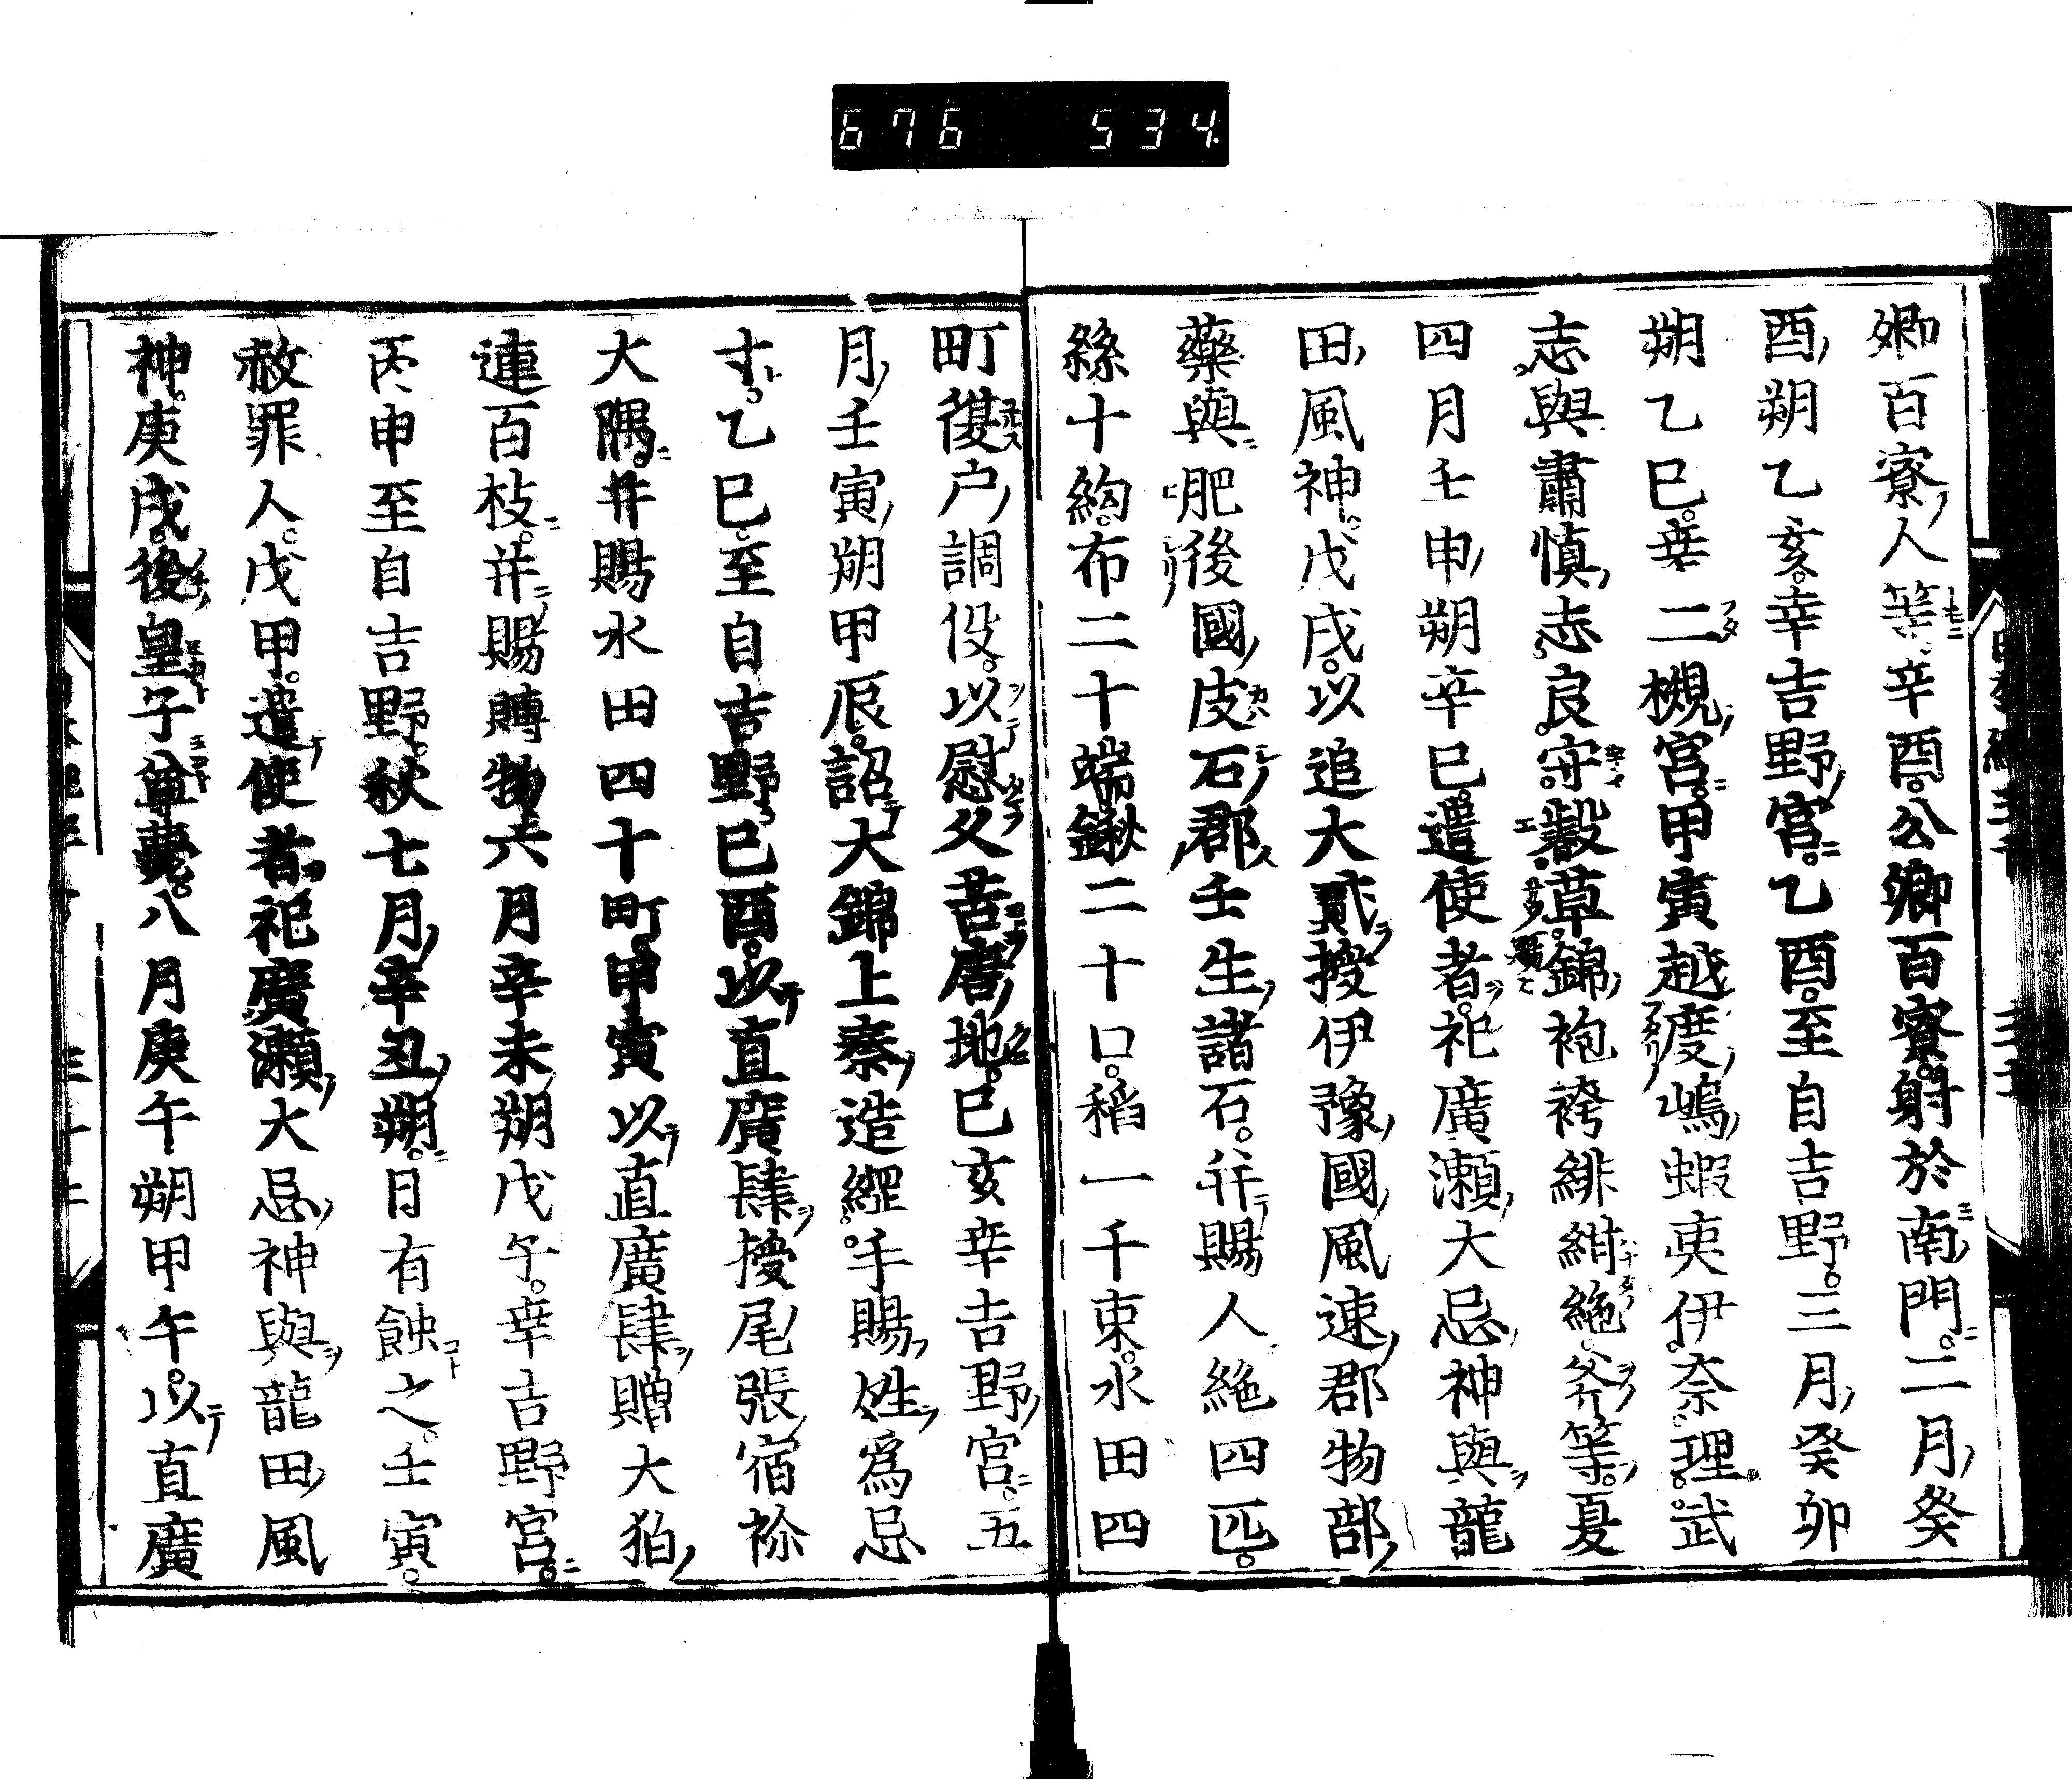 676 534
卿百寮人等辛酉公卿百寮射於南門二月癸
酉朔乙亥幸吉野宮乙酉至自吉野三月癸卯
朔乙巳幸二槻宮甲寅越度嶋蝦夷伊奈理武
志與肅慎志良守叡草錦袍袴緋紺絁斧等夏
四月壬申朔辛巳遣使者祀廣瀬大忌神與龍
田風神戊戌以追大貳授伊豫國風速郡物部
藥與肥後國皮石郡壬生諸石并賜人絁四匹
絲十絇布二十端鍬二十口稻一千束水田四
町復户調役以慰久苦唐地己亥幸吉野宮五
月壬寅朔甲辰詔大錦上秦造綱手賜姓爲忌
寸乙巳至自吉野己酉以直廣肆授尾張宿祢
大隅并賜水田四十町甲寅以直廣肆贈大狛
連百枝并賜賻物六月辛未朔戊午幸吉野宮
丙申至自吉野秋七月辛丑朔日有蝕之壬寅
赦罪人戊甲遣使者祀廣瀬大忌神與龍田風
神庚戌後皇子尊薨八月庚午朔甲午以直廣